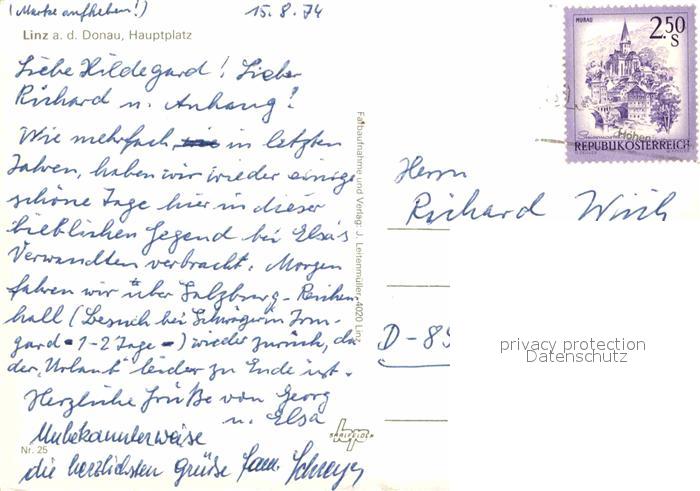 (Marke aufheben!) 15.8.74
Linz a. d. Donau, Hauptplatz
Liebe Hildegard! Lieber
Richard u. Anhang!
Wie mehrfach in letzten
Jahren, haben wir wieder einige
schöne Tage hier in dieser
lieblichen Gegend bei Elsa's
Verwandten verbracht. Morgen
fahren wir über Salzburg - Reichen-
hall (Besuch bei Schwägerin Irm-
gard - 1-2 Tage -) wieder zurück, da
der "Urlaub" leider zu Ende ist.
Herzliche Grüße von Georg
u. Elsa
Unbekannterweise
die herzlichsten Grüße Fam.
Nr. 25
Farbaufnahme und Verlag: J. Leitenmüller, 4020 Linz
MURAU
2.50
S
Steiermark
REPUBLIK ÖSTERREICH
Herrn
Richard
D-89
privacy protection
Datenschutz